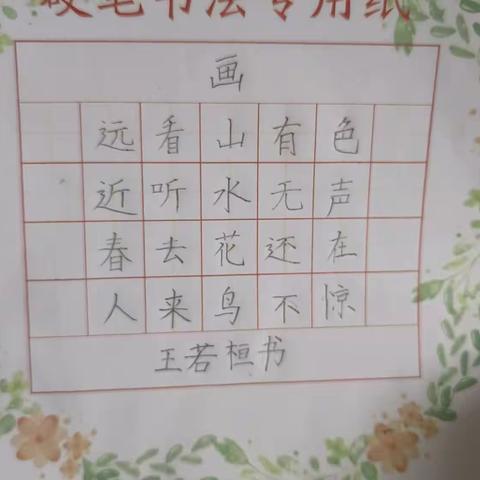 硬笔书法专用纸
画
远看山有色
近听水无声
春去花还在
人来鸟不惊
王若桓书